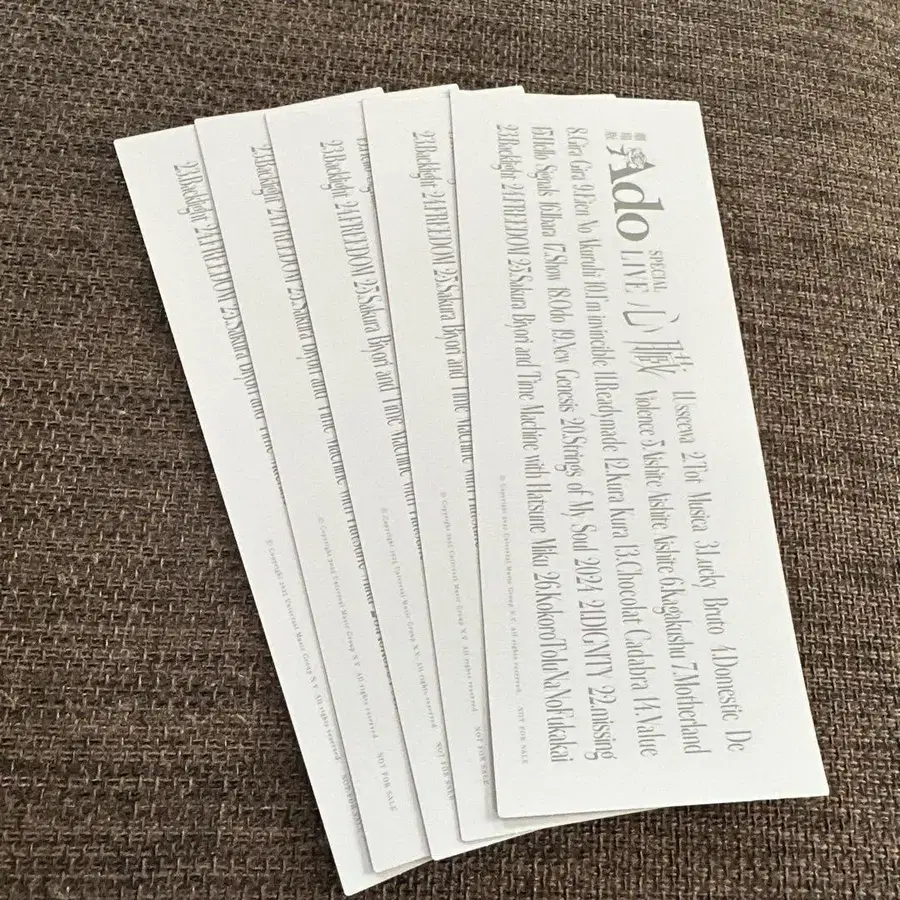 Ado SPECIAL
LIVE 心臓
1.Usseewa 2.Tot Musica 3.Lucky Bruto 4.Domestic De
Violence 5.Aishite Aishite Aishite 6.Kagakushu 7.Motherland
8.Gira Gira 9.Eien No Akuruhi 10.I'm invincible 11.Readymade 12.Kura Kura 13.Chocolat Cadabra 14.Value
15.Hello Signals 16.Ibara 17.Show 18.Odo 19.New Genesis 20.Strings of My Soul 2024 21.DIGNITY 22.missing
23.Backlight 24.FREEDOM 25.Sakura Biyori and Time Machine with Hatsune Miku 26.KokoroToIuNaNoFukakai
© Copyright 2025 Universal Music Group N.V. All rights reserved. NOT FOR SALE
23.Backlight 24.FREEDOM 25.Sakura Biyori and Time Machine with
© Copyright 2025 Universal Music Group N.V. All rights reserved. NOT FOR SALE
23.Backlight 24.FREEDOM 25.Sakura Biyori and Time Machine with
© Copyright 2025 Universal Music Group N.V. All rights reserved. NOT FOR SALE
23.Backlight 24.FREEDOM 25.Sakura Biyori and Time Machine with Hatsune Miku
© Copyright 2025 Universal Music Group N.V. All rights reserved. NOT FOR SALE
23.Backlight 24.FREEDOM 25.Sakura Biyori and Time
© Copyright 2025 Universal Music Group N.V. All rights reserved. NOT FOR SALE